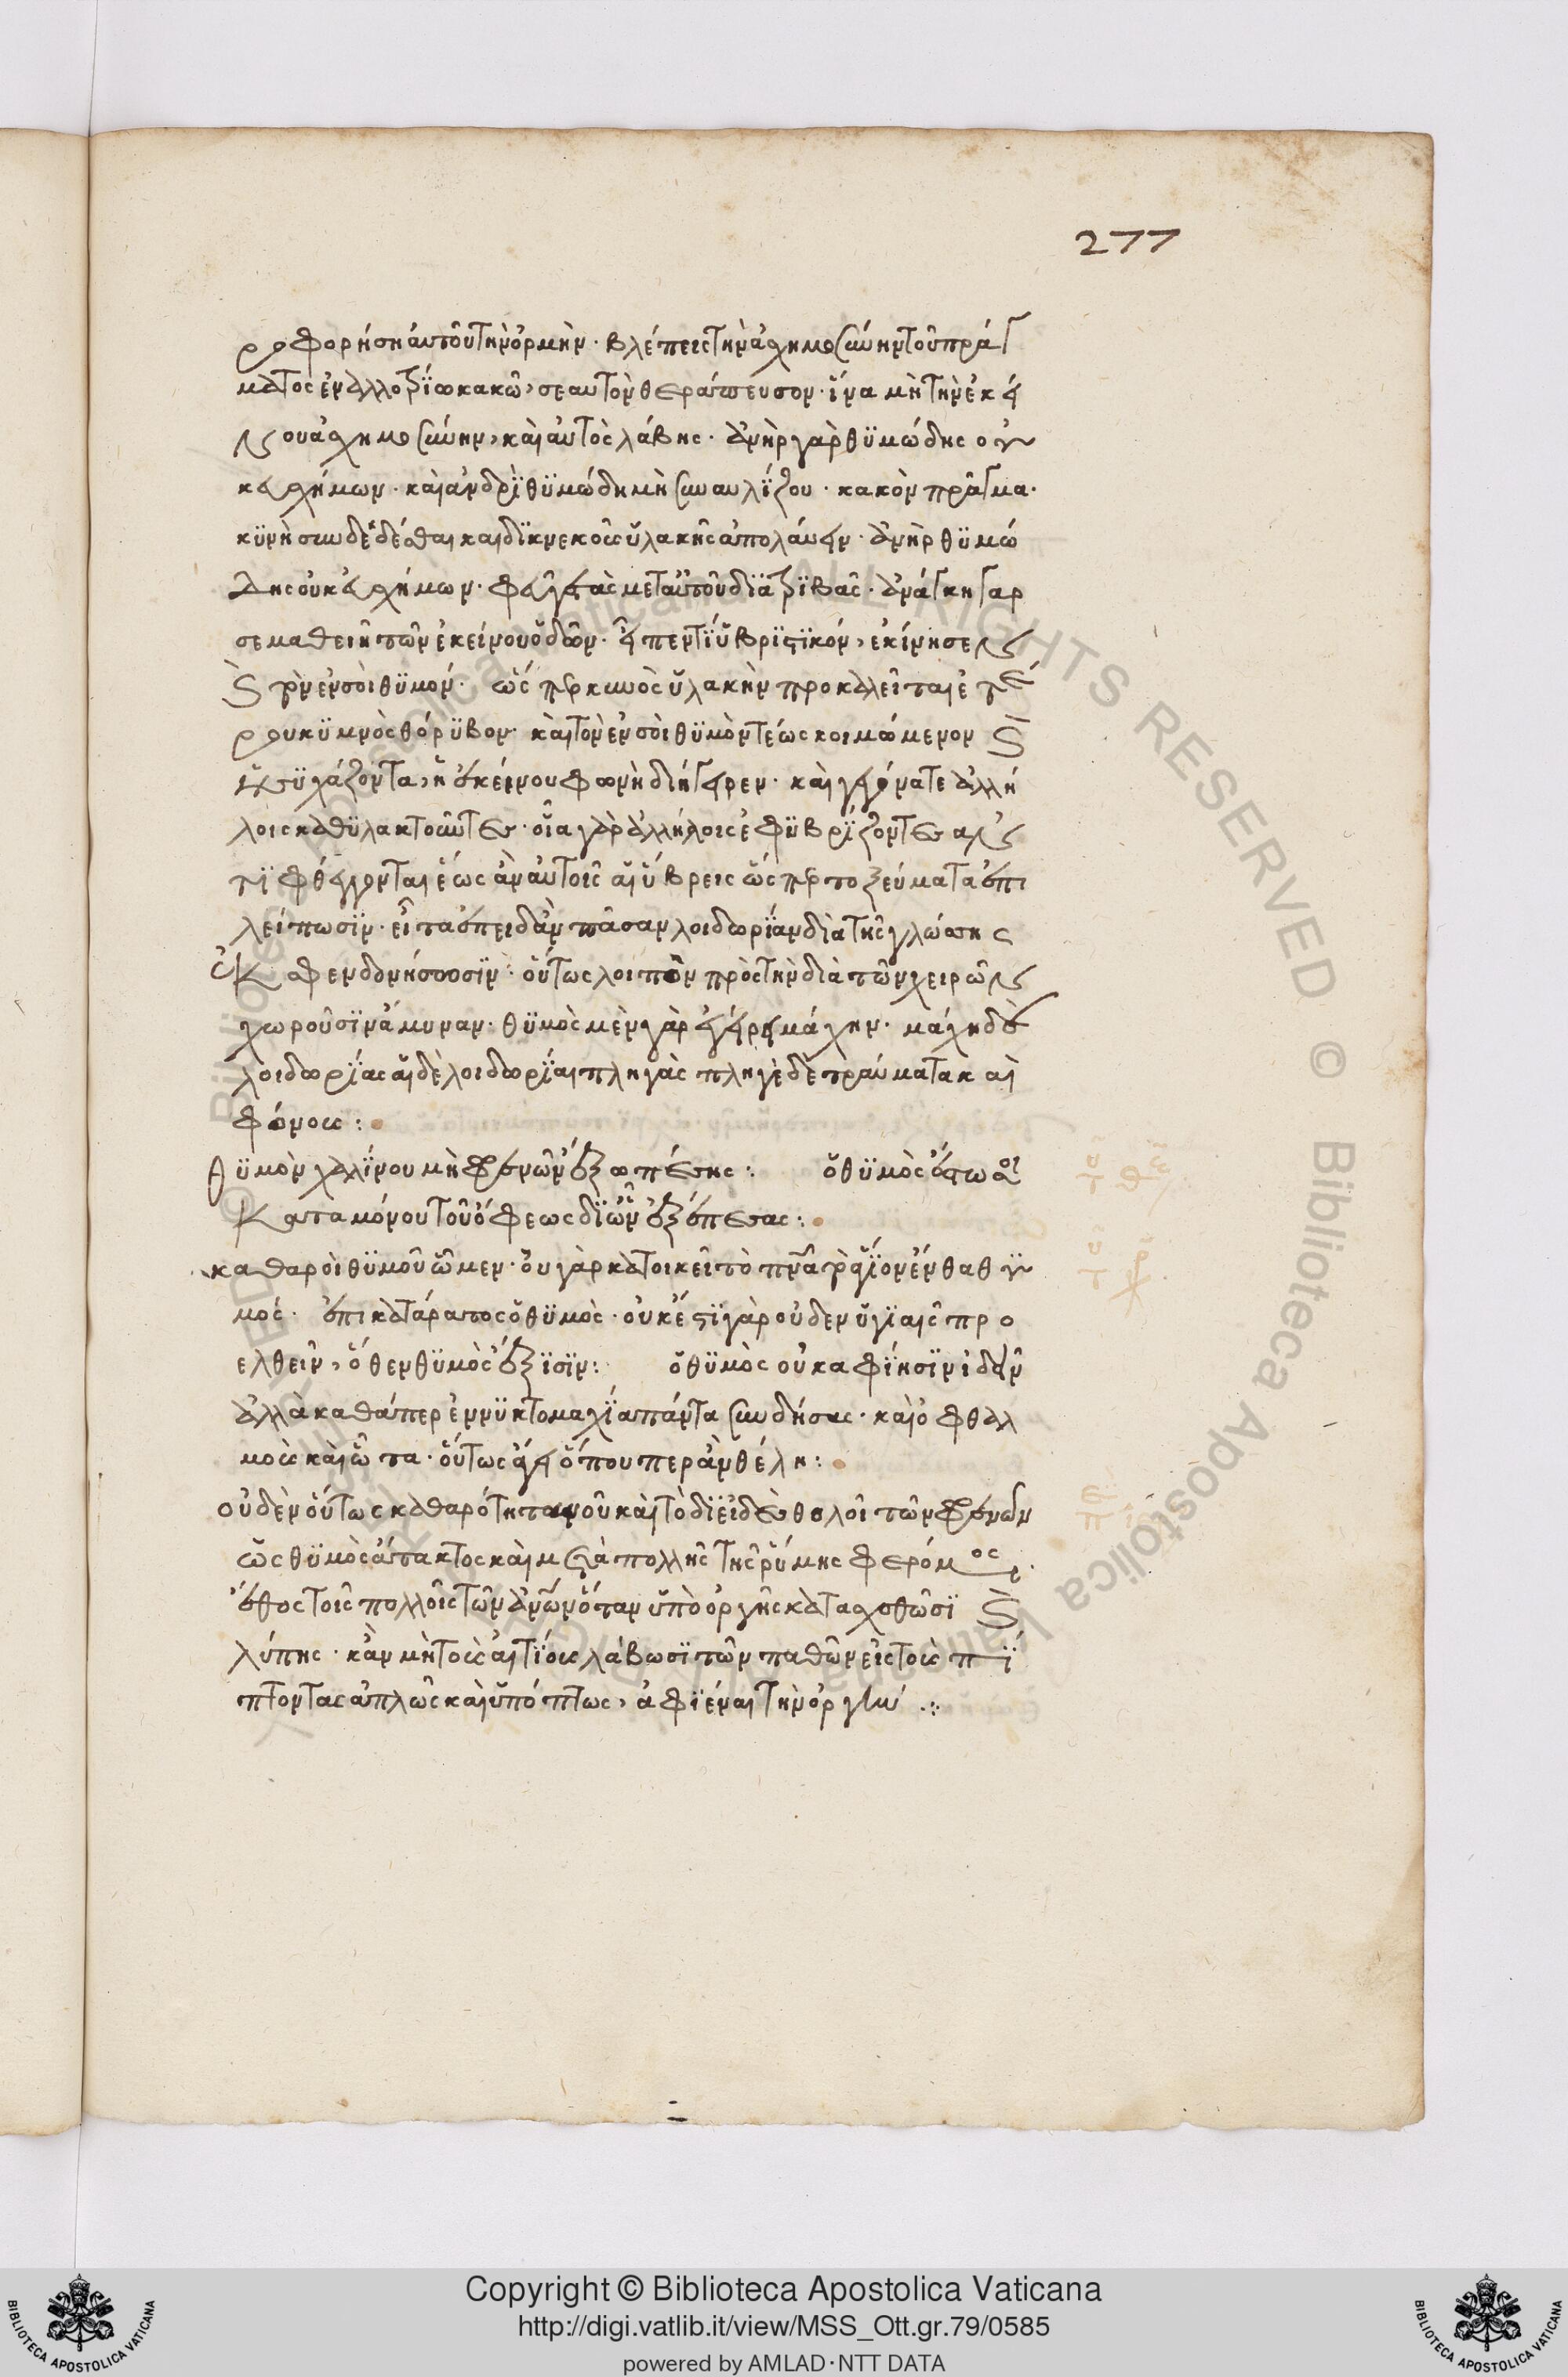 277
ροφορήση αὐτοῦ τὴν ὁρμήν· βλέπεις τὴν ἀσχημοσύνην τοῦ πράγ
ματος ἐν ἀλλοτρίω κακῶ, σεαυτὸν θεράπευσον· ἵνα μὴ τὴν ἐκεί
νου ἀσχημοσύνην, καὶ αὐτὸς λάβης· ἀνὴρ γὰρ θϋμώδης οὐκ
εὐσχήμων· καὶ ἀνδρὶ θϋμώδη μὴ συναυλίζου· κακὸν πρᾶγμα·
κϋνὴ συνδεδέσθαι καὶ διηνεκοῦς ὑλακῆς ἀπολάυειν· ἀνὴρ θϋμώ
δης οὐκ εὐσχήμων· φεῦγε τὰς μετ αὐτοῦ διατριβάς· ἀνάγκη γαρ
σε μαθεῖν τῶν ἐκείνου ὁδῶν· εἶπεν τϊ ὑβριστικόν, ἐκίνησεν
καὶ τὸν ἐν σοὶ θϋμόν· ὥσπερ κυνὸς ὑλακὴν προκαλεῖται ἑτέ
ρου κϋνὸς θόρϋβον· καὶ τὸν ἐν σοὶ θϋμὸν τέως κοιμώμενον καὶ
ἡσϋχάζοντα, ἡ ἐκείνου φωνὴ διήγειρεν· καὶ γίνεσθε ἀλλή
λοις καθϋλακτοῦντες· οἷα γὰρ ἀλλήλοις ἐφϋβρίζοντες ἀν
τϊφθέγγονται ἕως ἂν αὐτοῖς αἱ ὕβρεις ὥσπερ τοξεύματα ἐπι
λείπωσϊν· εἶτα ἐπειδὰν πᾶσαν λοιδωρίαν διὰ τῆς γλώσσης
ἐκσφενδονήσουσϊν· οὕτως λοιπὸν πρὸς τὴν διὰ τῶν χειρῶν
χωροῦσϊν ἄμυναν· θϋμὸς μὲν γὰρ ἐγείρει μάχην· μάχη δὲ
λοιδωρίας αἱ δὲ λοιδωρίαι πληγὰς πληγὲ δὲ τραύματα καὶ
φόνους:
θϋμὸν χαλίνου μὴ φρενῶν ἔξω πέσης: ὁ θϋμὸς ἔστω σοι
κατα μόνου τοῦ ὄφεως δι ὧν ἐξέπεσας:
καθαροὶ θϋμοῦ ὦμεν· οὐ γὰρ κατοικεῖ τὸ πνα τὸ ἅγϊον ἔνθα θϋ
μός· ἐπικατάρατος ὁ θϋμὸς· οὐκ ἔστϊ γὰρ οὐδεν ὑγϊαὶς προ
ελθεῖν, ὅθεν θϋμὸς ἔξϊσϊν: ὁ θϋμὸς οὐκ αφίησϊν ἰδεῖν
ἀλλὰ καθάπερ ἐν νϋκτομαχία πάντα συνδήσας· καὶ ὀφθαλ
μοὺς καὶ ὦτα· οὕτως ἄγει ὅπου περ ἂν θέλη:
οὐδὲν οὕτως καθαρότητα νοῦ καὶ τὸ διειδὲς θολοῖ τῶν φρενῶν
ὡς θϋμὸς ἄτακτος καὶ μετὰ πολλῆς τῆς ῥύμης φερόμενος·
ἔθος τοῖς πολλοῖς τῶν ἀνων ὅταν ὑπὸ ὀργῆς κατασχεθῶσϊ καὶ
λύπης· κἂν μὴ τοὺς αἰτίους λάβωσϊ τῶν παθῶν εἰς τοὺς πί
πτοντας ἁπλῶς καὶ ὑπόπτως, ἀφϊέναι τὴν ὀργὴν
Copyright © Biblioteca Apostolica Vaticana
http://digi.vatlib.it/view/MSS_Ott.gr.79/0585
powered by AMLAD·NTT DATA